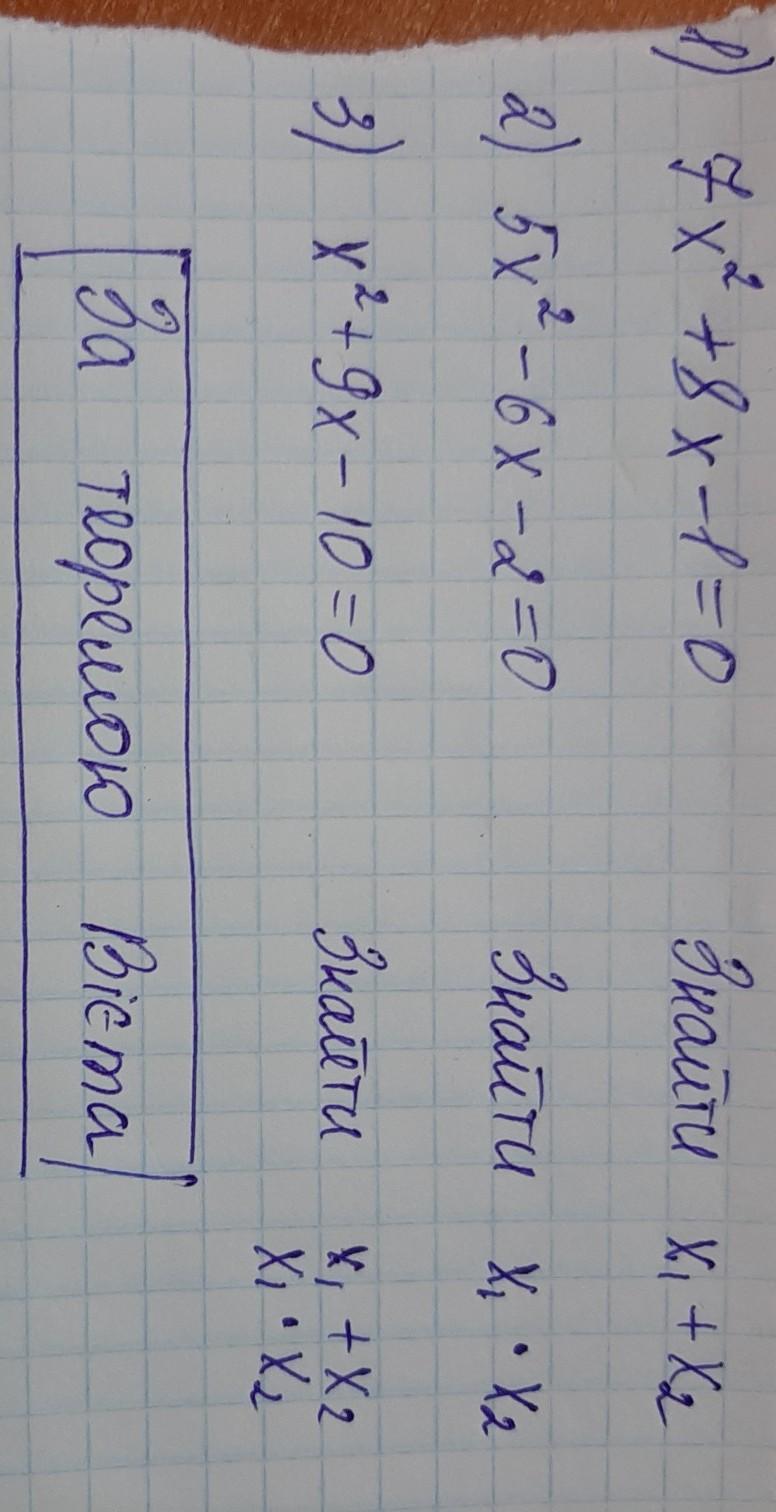 1) 7x² + 8x - 1 = 0 Знайти x₁ + x₂
2) 5x² - 6x - 2 = 0 Знайти x₁ · x₂
3) x² + 9x - 10 = 0 Знайти x₁ + x₂
x₁ · x₂
За теоремою Вієта